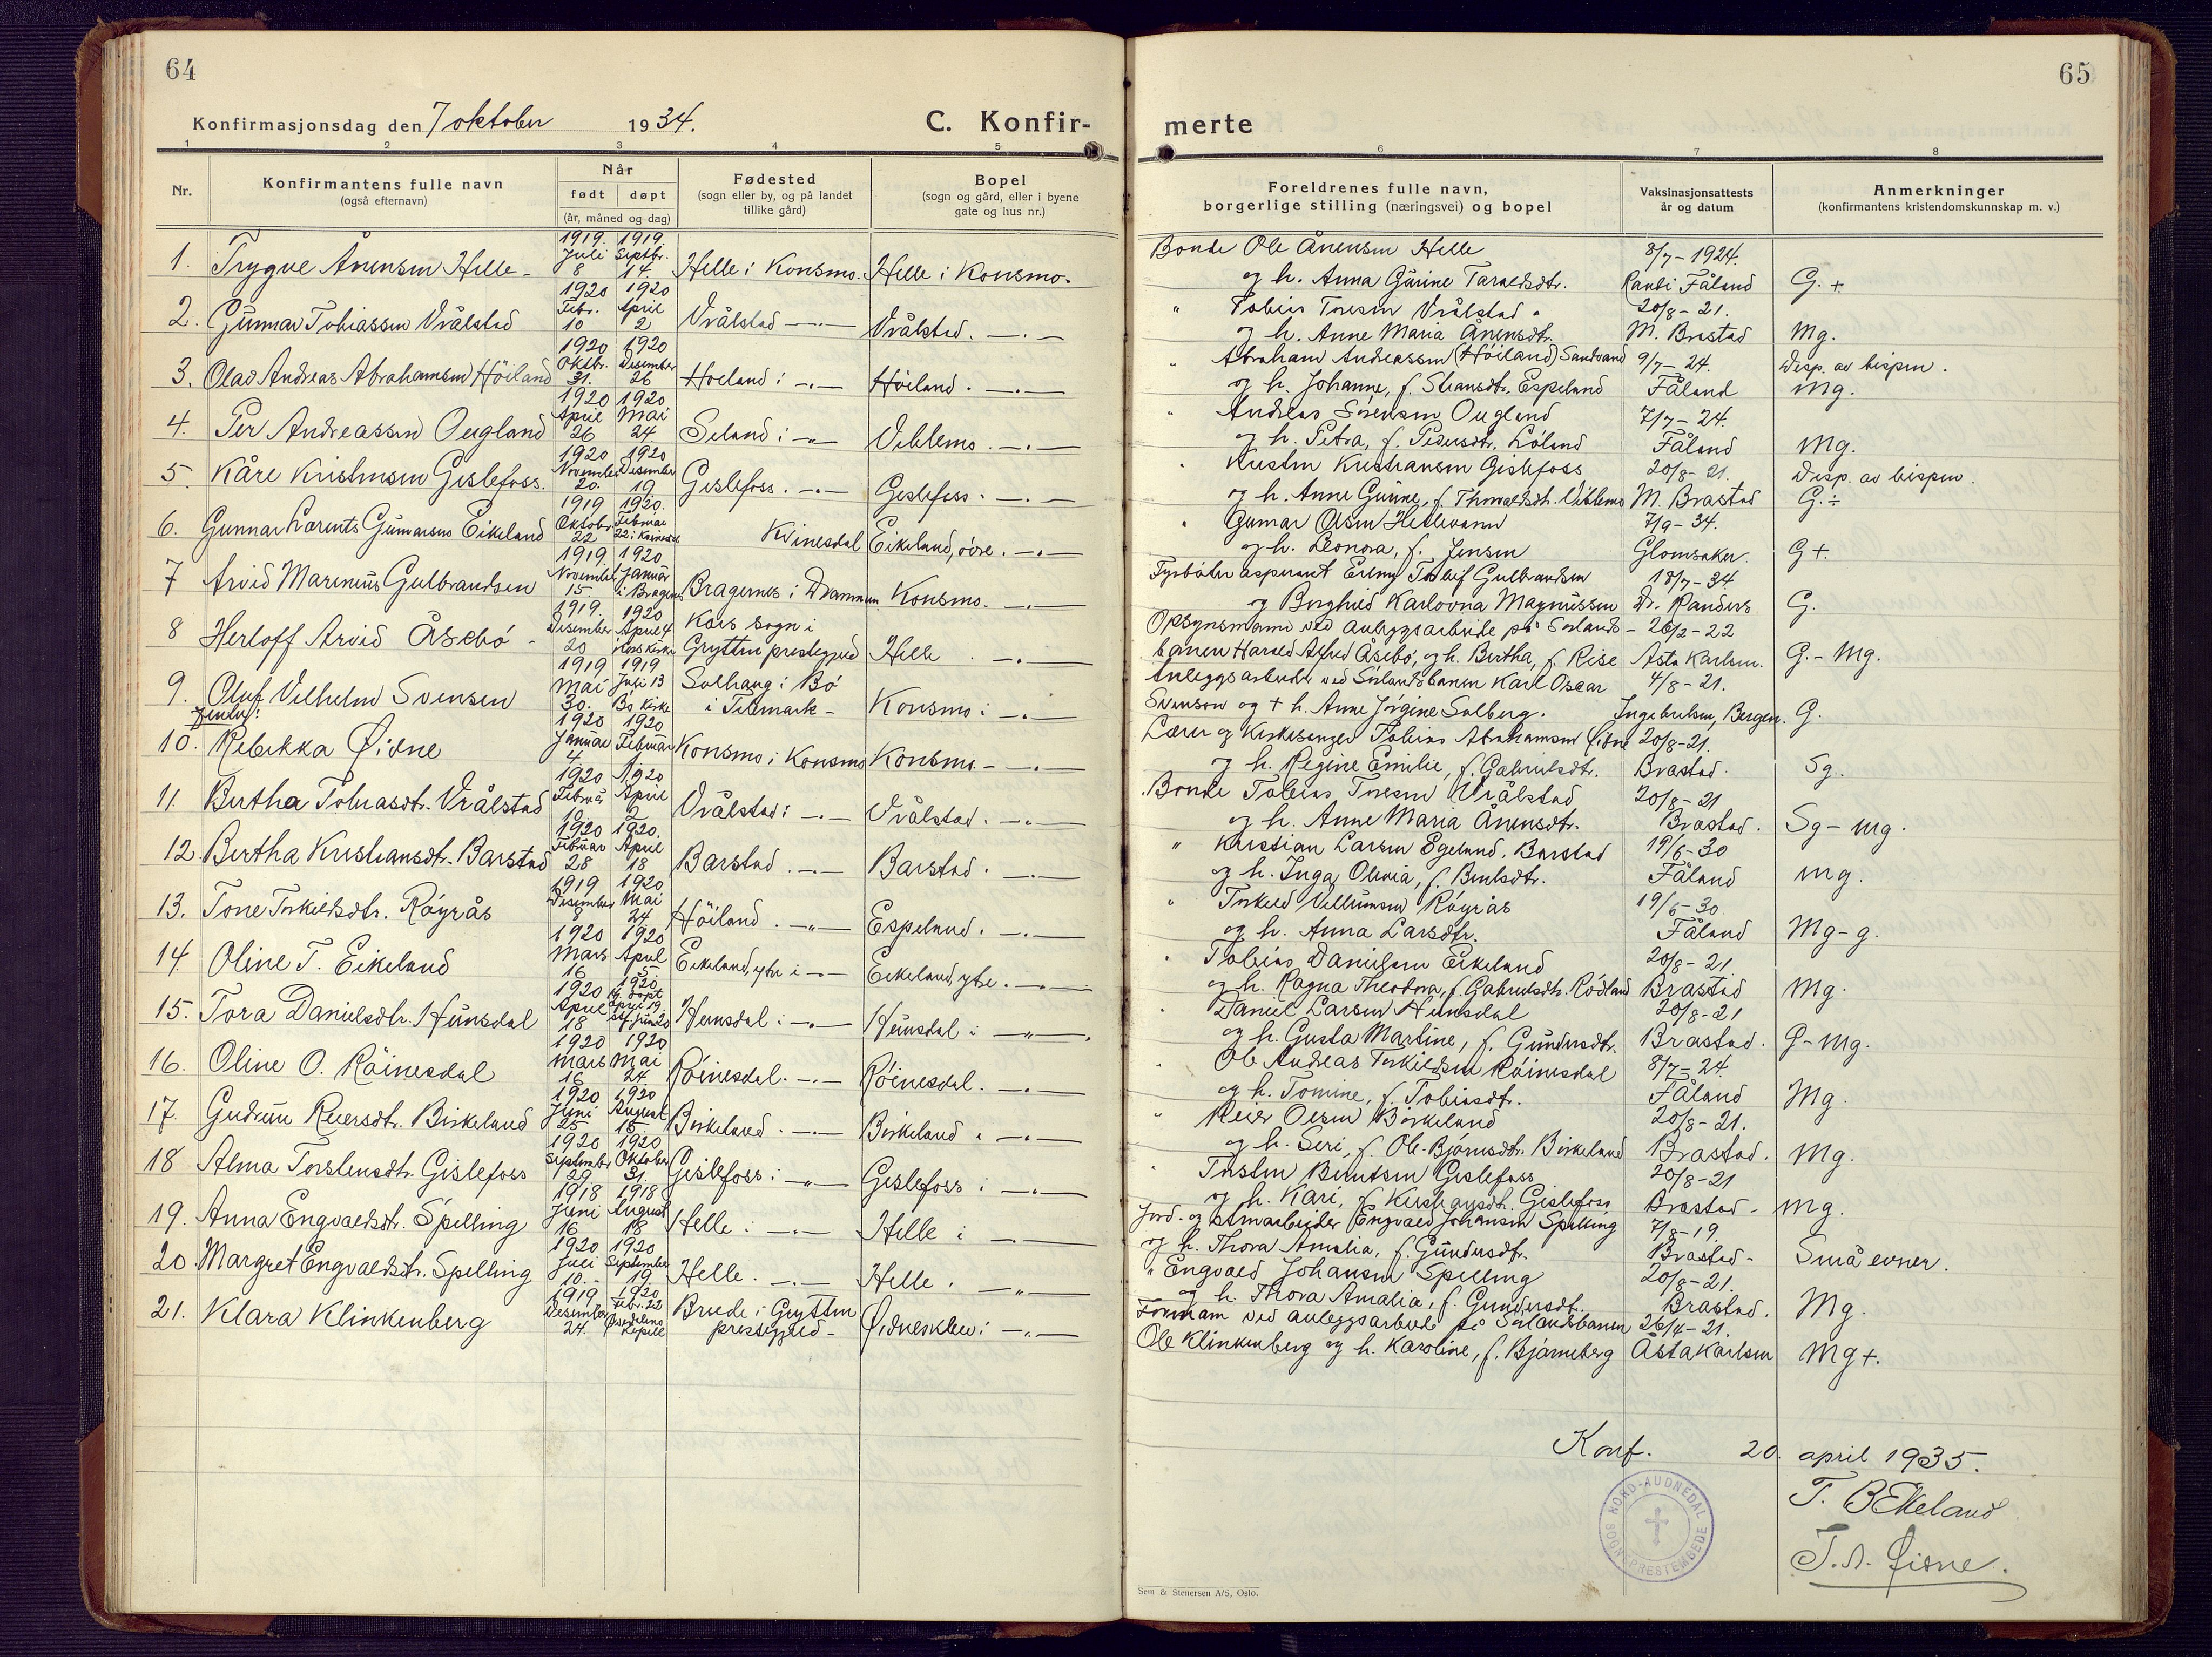 64
65
Konfirmasjonsdag den 7 oktober 1934.
C. Konfir-
merte
1 2 3 4 5 6 7 8
Nr.
Konfirmantens fulle navn
(også efternavn)
Når
født døpt
(år, måned og dag)
Fødested
(sogn eller by, og på landet
tillike gård)
Bopel
(sogn og gård, eller i byene
gate og hus nr.)
Foreldrenes fulle navn,
borgerlige stilling (næringsvei) og bopel
Vaksinasjonsattests
år og datum
Anmerkninger
(konfirmantens kristendomskunnskap m. v.)
1919. 1919.
Juli Septbr.
1. Trygve Ånensen Helle - 8 14. Helle i Konsmo. Helle i Konsmo.
Bonde Ole Ånensen Helle 8/7-1924.
og h. Anna Gurine Taraldsdtr. Randi Fåland G. +
1920 1920
Febr. April
2. Gunnar Tobiassen Vrålstad 10 2 Vrålstad —„— Vrålstad. —„—
" Tobias Toresen Vrålstad 20/8-21.
og h. Anne Maria Ånensdtr. M. Brastad Mg.
1920 1920
Oktbr. Desember
3. Olav Andreas Abrahamsen Höiland 31. 26 Hoeland i —„— Höiland. —„—
" Abraham Andreassen (Höiland) Sandvand 9/7-24. Disp. av bispen.
og h. Johanne, f. Espeland Fåland Mg.
1920 1920
April Mai
4. Per Andreassen Ougland 26 24 Seland i —„— Viblemo. —„—
" Andreas Sörensen Ougland 7/7-24.
og h. Petra, f. Pedersdtr. Löland Fåland Mg.
1920 1920
November Desember
5. Kåre Kristensen Gislefoss. 20. 19 Gislefoss. —„— Gislefoss. —„—
" Kristen Kristiansen Gislefoss 20/8-21. Disp. av bispen.
og h. Anne Gurine, f. Thorvaldsdtr. Viblemo M. Brastad G. ÷
1919 1920.
Oktober Februar
6. Gunnar Laurents Gunnarsen Eikeland 22 22 i Kvinesdal Kvinesdal Eikeland, övre. —„—
" Gunnar Olsen 7/9-34.
og h. Leonora, f. Jensen Glomsaker. G+.
1919 1920
November Januar
7 Arvid Marenius Gulbrandsen 15 i Bragernes Bragernes i Drammen Konsmo. —„—
Fyrbøter aspirant Gulbrandsen 18/7-34
og Borghild Karlovna Magnussen Dr. Randers G.
1919. 1920
Desember April 4
8 Herloff Arvid Åsebö - 20 i Kors Kirke Kors sogn i
Grytten prestegjeld Helle. —„—
Opsynsmann ved anleggsarbeide på Sörlands- 26/2-22
banen Harald Alfred Åsebö, og h. Bertha, f. Rise Asta Karlsen. G.-Mg.
1919 1919
Mai Juli 13
9. Oluf Vilhelm Svensen 30. Bö Kirke Solhaug i Bö
i Telemark - Konsmo i —„—
Anleggsarbeider ved Sörlandsbanen Karl Oscar 4/8-21.
Svenson og + h. Anne Jörgine Solberg. Ingebrektsen, Bergen. G.
1920 1920
Januar Februar
10. Rebekka Øidne 4 1 Konsmo i Konsmo Konsmo - —„—
Lærer og Kirkesanger Tobias Abrahamsen Øidne 20/8-21.
og h. Regine Emilie, f. Gabrielsdtr. Brastad. Sg.
1920 1920
Februar April
11. Bertha Tobiasdtr. Vrålstad 10. 2 Vrålstad i —„— Vrålstad. —„—
Bonde Tobias Toresen Vrålstad 20/8-21
og h. Anne Maria Ånensdtr. Brastad. Sg-mg.
1920 1920.
Februar April
12. Bertha Kristiansdtr. Barstad 28 18 Barstad. —„— Barstad. —„—
" Kristian Larsen Egeland, Barstad 19/6-30
og h. Inga Olivia, f. Bentsdtr. Fåland Mg.
1919 1920
Desember Mai
13. Tone Torkildsdtr. Röyrås 8 24 Höiland. —„— Espeland. —„—
" Torkild Villumsen Röyrås 19/6-30.
og h. Anna Larsdtr. Fåland Mg-g.
1920 1920
Mars April
14. Oline T. Eikeland 16 5 Eikeland, ytre i —„— Eikeland, ytre. —„—
" Tobias Danielsen Eikeland 20/8-21
og h. Ragna Theodora, f. Gabrielsdtr. Rödland Brastad Mg.
1920 1920
April Hj. döpt
15. Tora Danielsdtr. Hunsdal 18 april 19 stf. juni 20 Hunsdal i —„— Hunsdal i —„—
" Daniel Larsen Hunsdal 20/8-21
og h. Gusta Martine, f. Gundersdtr. Brastad. G-mg.
1920 1920
Mars Mai
16. Oline O. Röinesdal 16 24 Röinesdal. —„— Röinesdal. —„—
" Ole Andreas Torkildsen Röinesdal 8/7-24
og h. Tomine, f. Tobiasdtr. Fåland Mg.
1920 1920
Juni August
17. Gudrun Reiersdtr. Birkeland 25 15 Birkeland. —„— Birkeland. —„—
" Reier Olsen Birkeland 20/8-21.
og h. Seri, f. Ole-Björnsdtr. Birkeland Brastad. Mg.
1920 1920
September Oktober
18 Alma Torstensdtr. Gislefoss 29 31. Gislefoss i —„— Gislefoss i —„—
" Torsten Berntsen Gislefoss 20/8-21
og h. Kari, f. Kristiansdtr. Gislefoss Brastad - Mg.
1918 1918
Juni August
19. Anna Engvaldsdtr. Spilling 16 18 Helle i —„— Helle i —„—
Jord- og stenarbeider Engvald Johansen Spilling 7/8-19.
og h. Thora Amalia, f. Gundersdtr. Brastad - Små evner.
1920 1920
Juli September
20. Margret Engvaldsdtr. Spelling 10. 19. Helle. —„— Helle. —„—
" Engvald Johansen Spelling 20/8-21.
og h. Thora Amalia, f. Gundersdtr. Brastad. Mg.
1919 1920
Desember Febr. 22
21. Klara Klinkenberg 24. kapell Brude i Grytten
prestegjeld - Øidneskleiv i —„—
Formann ved anleggsarbeide på Sörlandsbanen 26/4-21.
Ole Klinkenberg og h. Karoline, f. Bjørneberg Asta Karlsen Mg+.
Konf. 20. april 1935.
T. B Eikeland
T. A. Øidne.
NORD-AUDNEDAL
SOGNEPRESTEMBEDE
Sem & Stenersen A/S, Oslo.